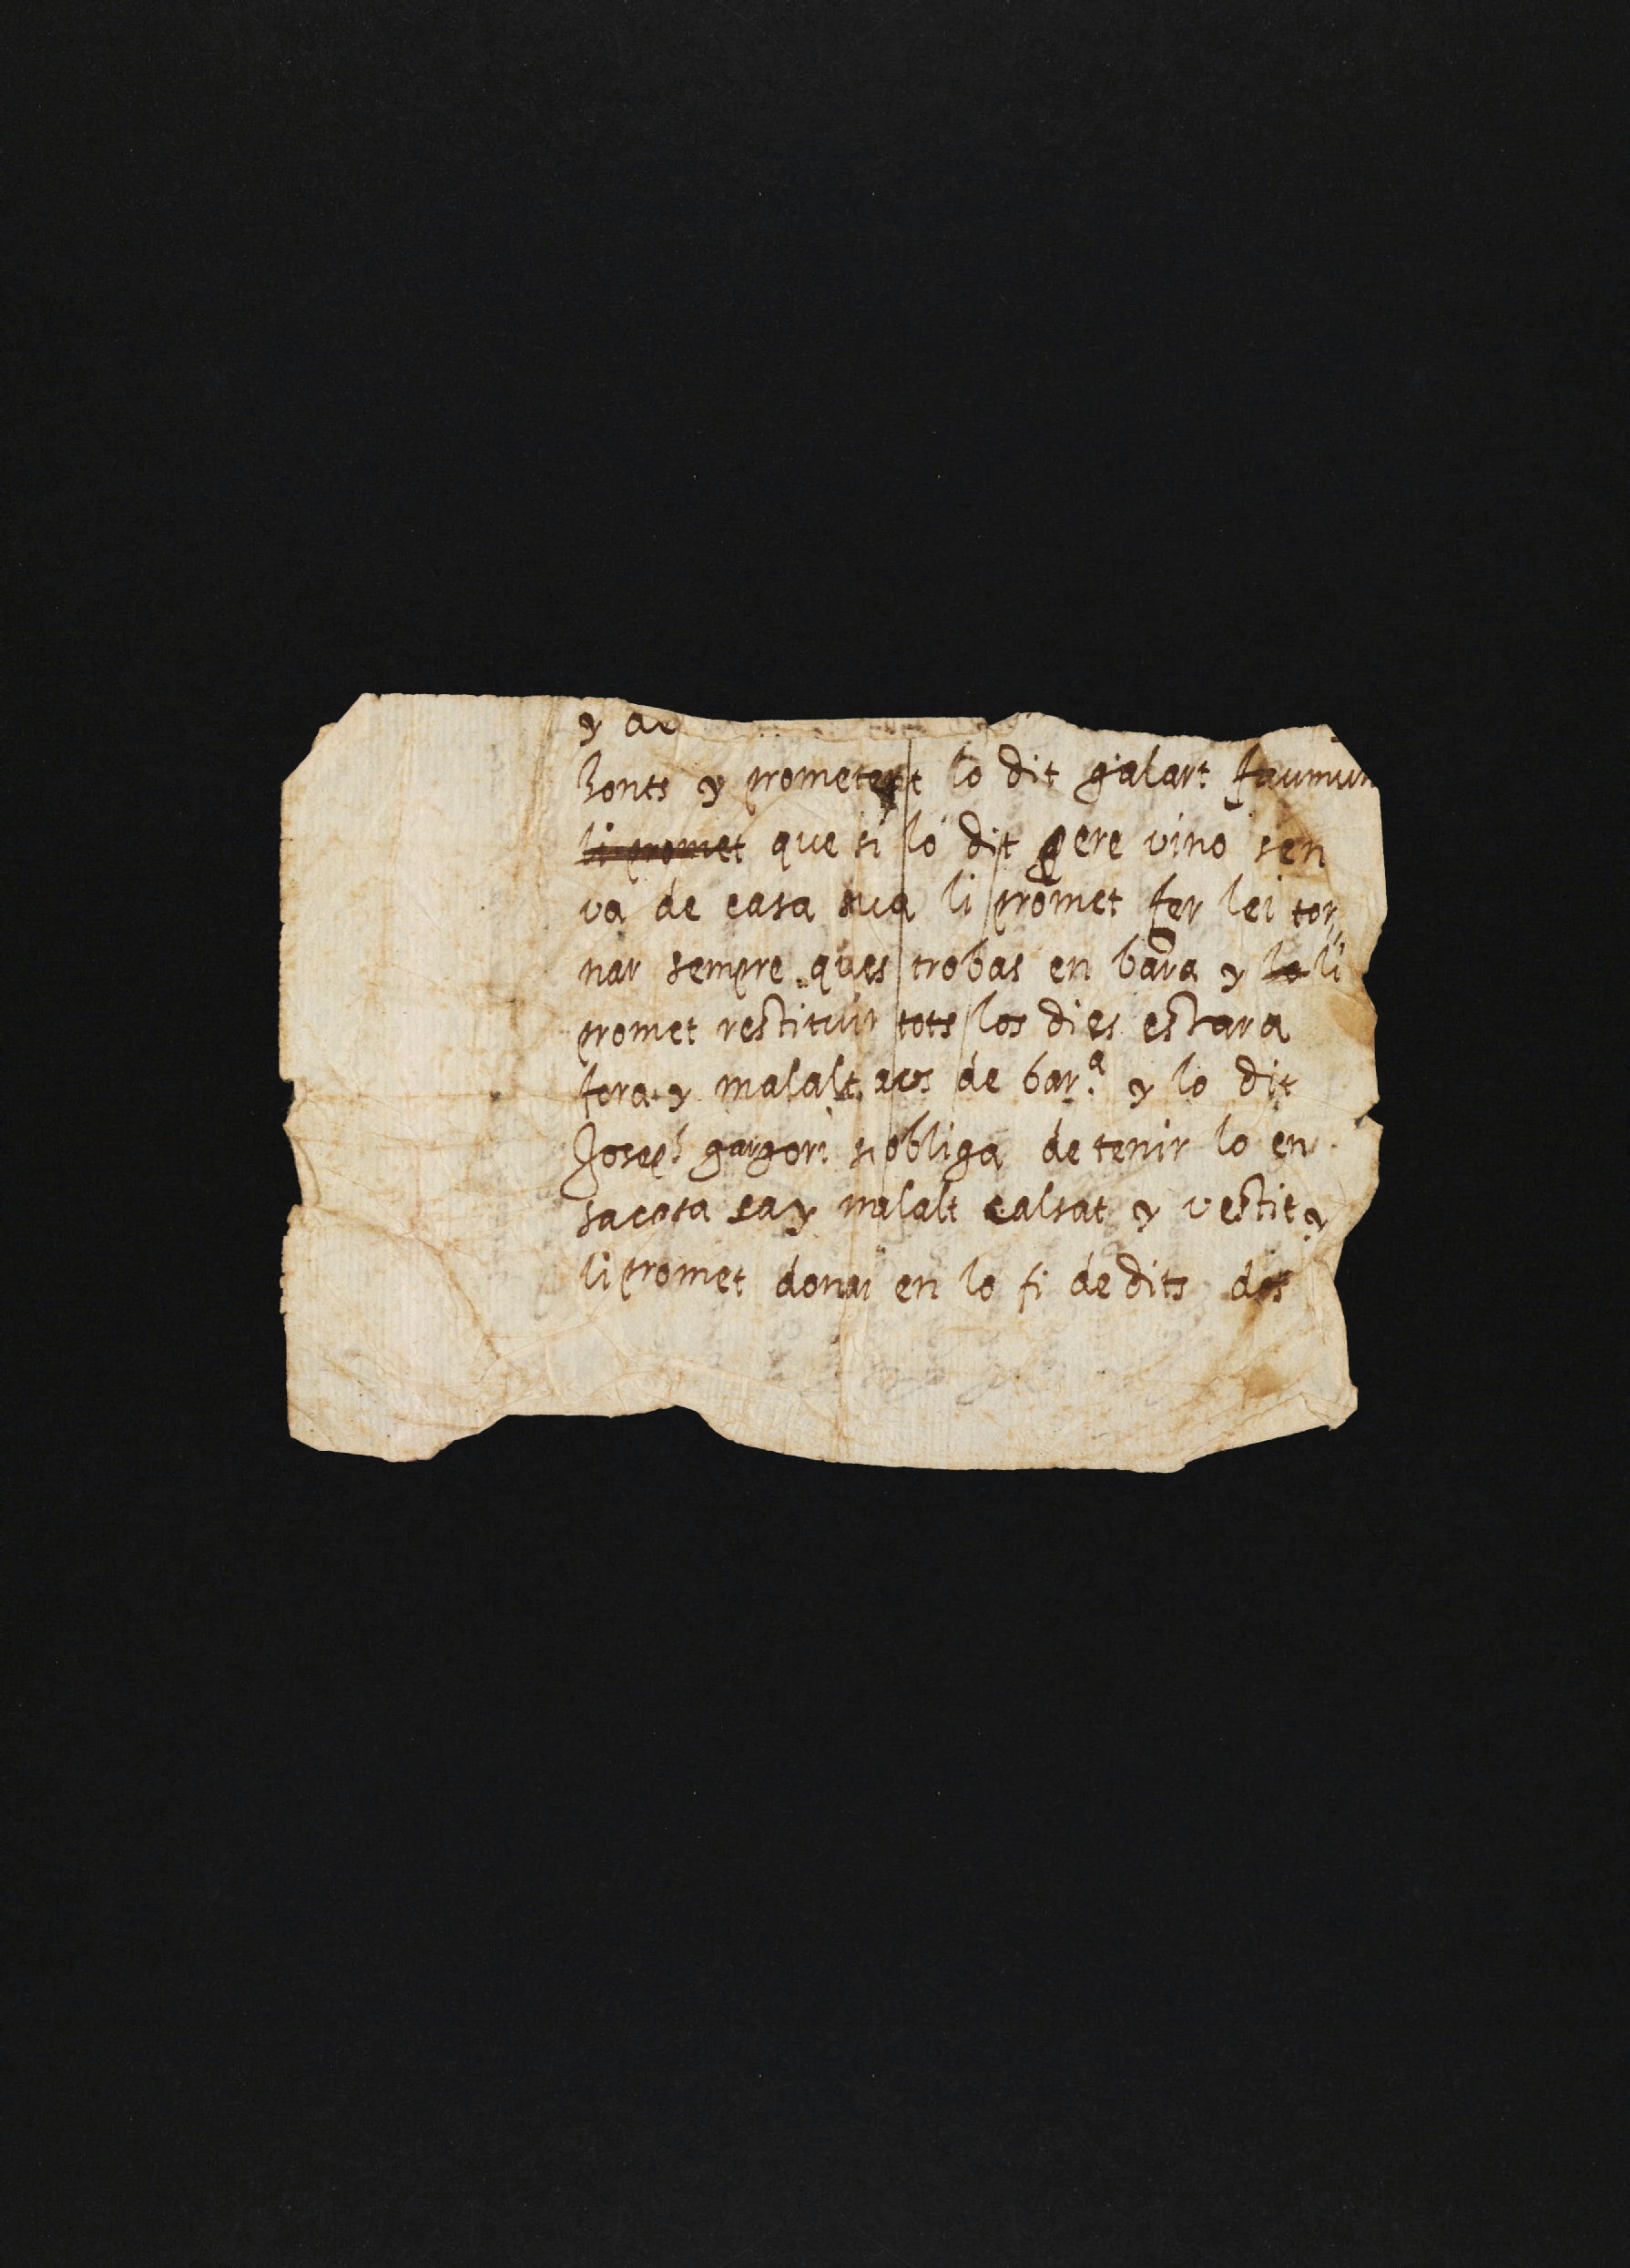 y de
honts y prometent lo dit galart
li promet que si lo dit pere vino sen
va de casa sua li promet fer lei tor
nar sempre ques trobas en bara y lo li
promet restituir tots los dies estara
fora y malalt de bar.ª y lo dit
Joseph gargori si obliga de tenir lo en
sa casa sa y malalt calsat y vestit y
li promet donar en lo fi de dits dos